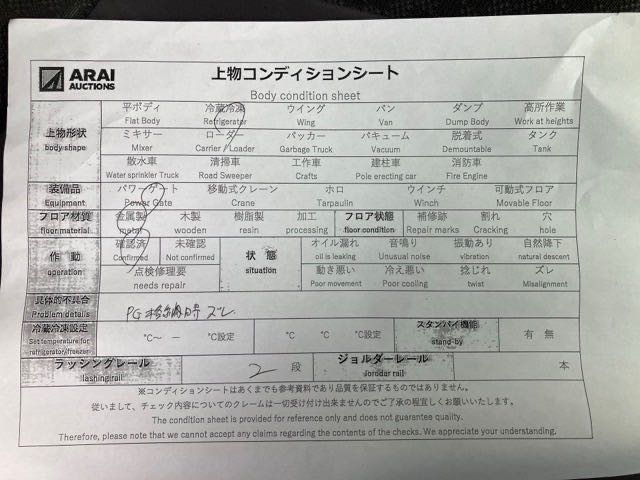 ARAI
AUCTIONS
上物コンディションシート
Body condition sheet
上物形状
body shape
平ボディ 冷蔵冷凍 ウイング バン ダンプ 高所作業
Flat Body Refrigerator Wing Van Dump Body Work at heights
ミキサー ローダー パッカー バキューム 脱着式 タンク
Mixer Carrier / Loader Garbage Truck Vacuum Demountable Tank
散水車 清掃車 工作車 建柱車 消防車
Water sprinkler Truck Road Sweeper Crafts Pole erecting car Fire Engine
装備品 パワーゲート 移動式クレーン ホロ ウインチ 可動式フロア
Equipment Power Gate Crane Tarpaulin Winch Movable Floor
フロア材質 金属製 木製 樹脂製 加工 フロア状態 補修跡 割れ 穴
floor material metal wooden resin processing floor condition Repair marks Cracking hole
作動
operation
確認済 未確認
Confirmed Not confirmed
点検修理要
needs repair
状態
situation
オイル漏れ 音鳴り 振動あり 自然降下
oil is leaking Unusual noise vibration natural descent
動き悪い 冷え悪い 捻じれ ズレ
Poor movement Poor cooling twist Misalignment
具体的不具合
Problem details
PG 格納時 ズレ
冷蔵冷凍設定 ℃〜 ー ℃設定 ℃ ℃ ℃設定 スタンバイ機能 有 無
Set temperature for refrigerator/freezer stand-by
ラッシングレール 2 段 ジョルダーレール 本
lashing rail jorodar rail
※コンディションシートはあくまでも参考資料であり品質を保証するものではありません。
従いまして、チェック内容についてのクレームは一切受け付け出来ませんのでご了承の程宜しくお願いいたします。
The condition sheet is provided for reference only and does not guarantee quality.
Therefore, please note that we cannot accept any claims regarding the contents of the checks. We appreciate your understanding.